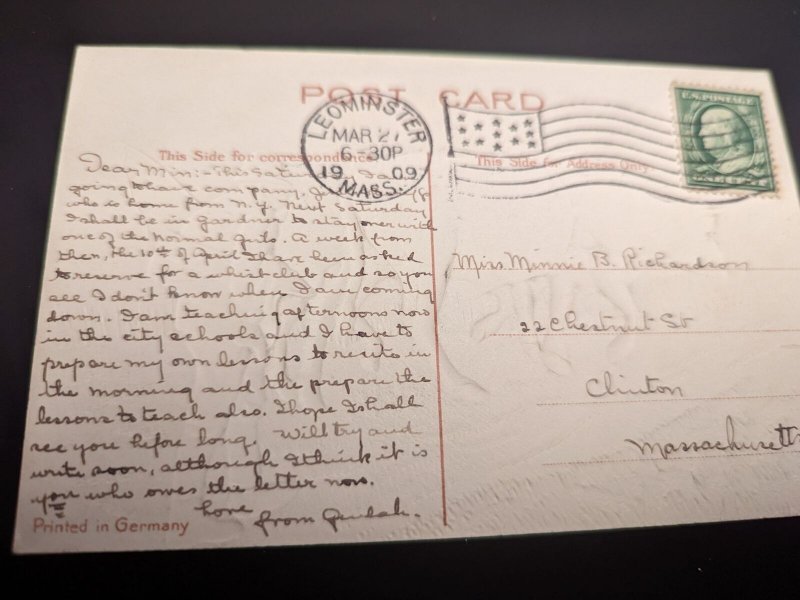 POST CARD
LEOMINSTER
MAR 27
6-30P
1909
MASS.
U.S. POSTAGE
This Side for correspondence
This Side for Address Only
Dear Min:- This Saturday I am
going to have company,
who is home from N.Y. Next Saturday
I shall be in Gardner to stay over with
one of the normal girls. A week from
then, the 10th of April I have been asked
to reserve for a whist club and so you
see I don't know when I am coming
down. I am teaching afternoons now
in the city schools and I have to
prepare my own lessons to recite in
the morning and the prepare the
lessons to teach also. I hope I shall
see you before long. Will try and
write soon, although I think it is
you who owes the letter now.
Love from Beulah.
Printed in Germany
Miss Minnie B. Richardson
22 Chestnut St
Clinton
Massachusetts